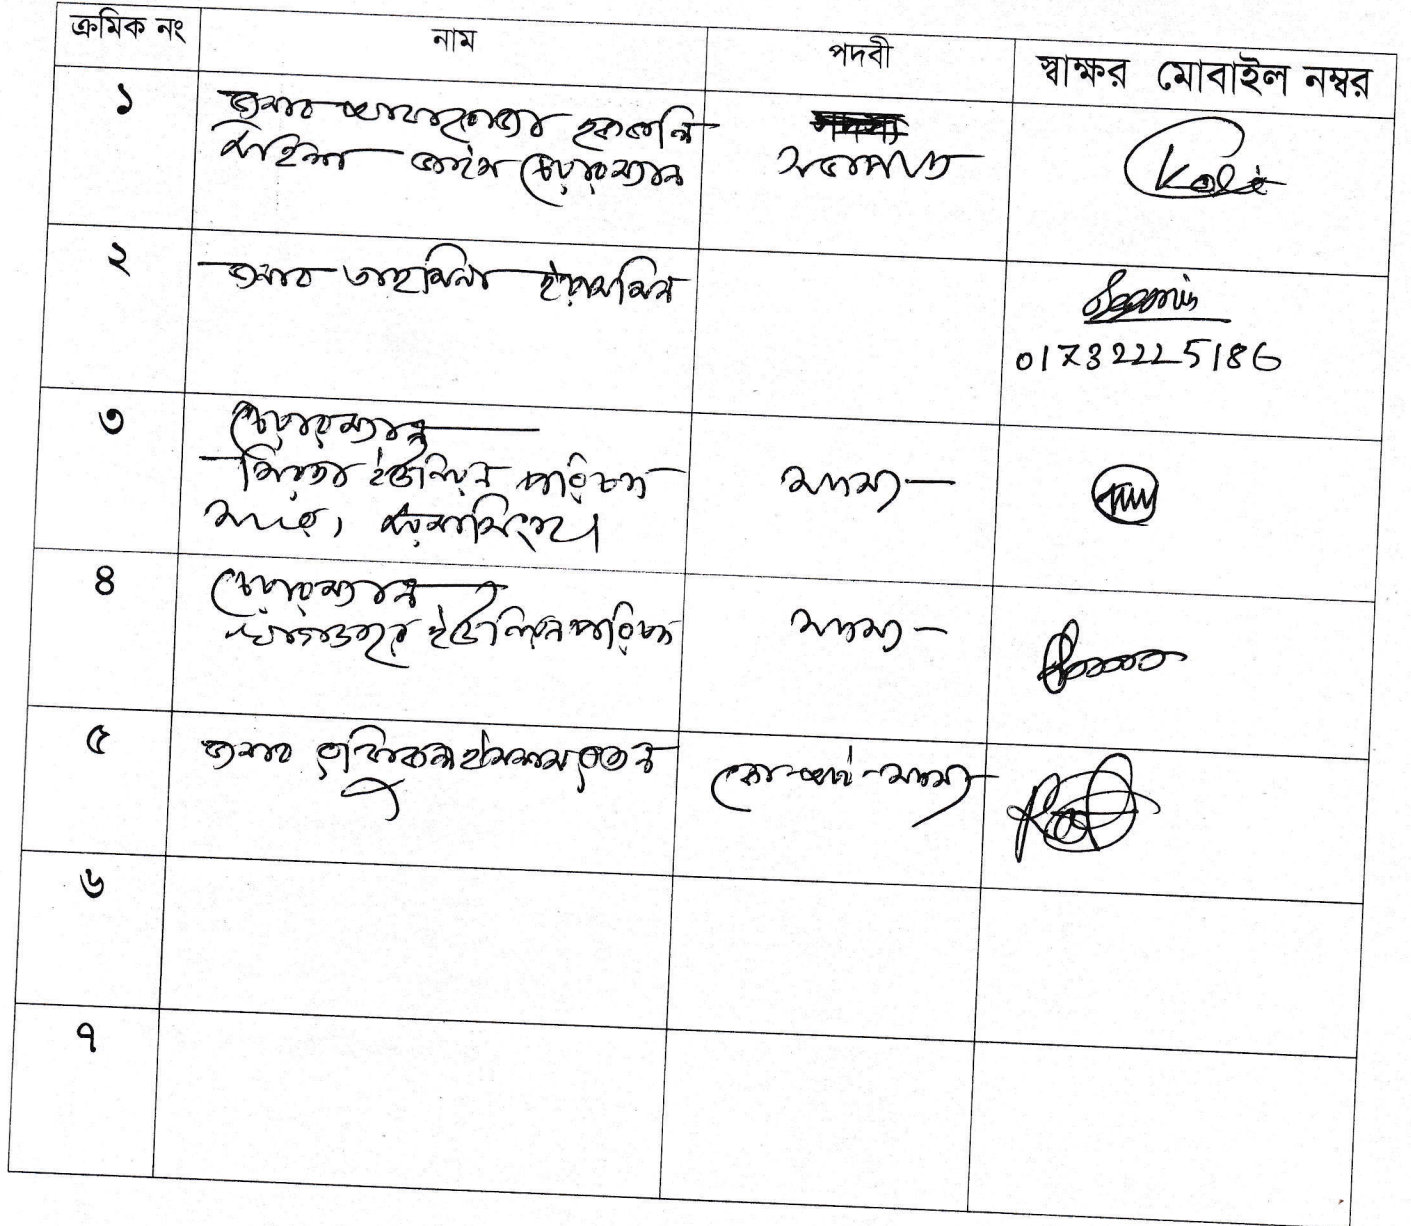 ক্রমিক নং নাম পদবী স্বাক্ষর মোবাইল নম্বর
১ জনাব
মহিলা ভাইস চেয়ারম্যান সভাপতি
২ জনাব তাহমিনা ইয়াসমিন
01732225186
৩ চেয়ারম্যান
ইউনিয়ন পরিষদ সদস্য
সদর, ময়মনসিংহ।
৪ চেয়ারম্যান
ইউনিয়ন পরিষদ সদস্য
৫ জনাব কো-অপ্ট সদস্য
৬
৭